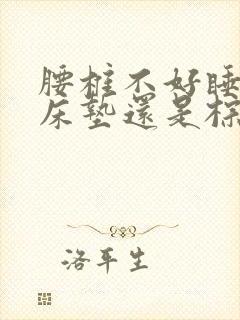 腰椎不好睡
床墊還是棕
洛平生